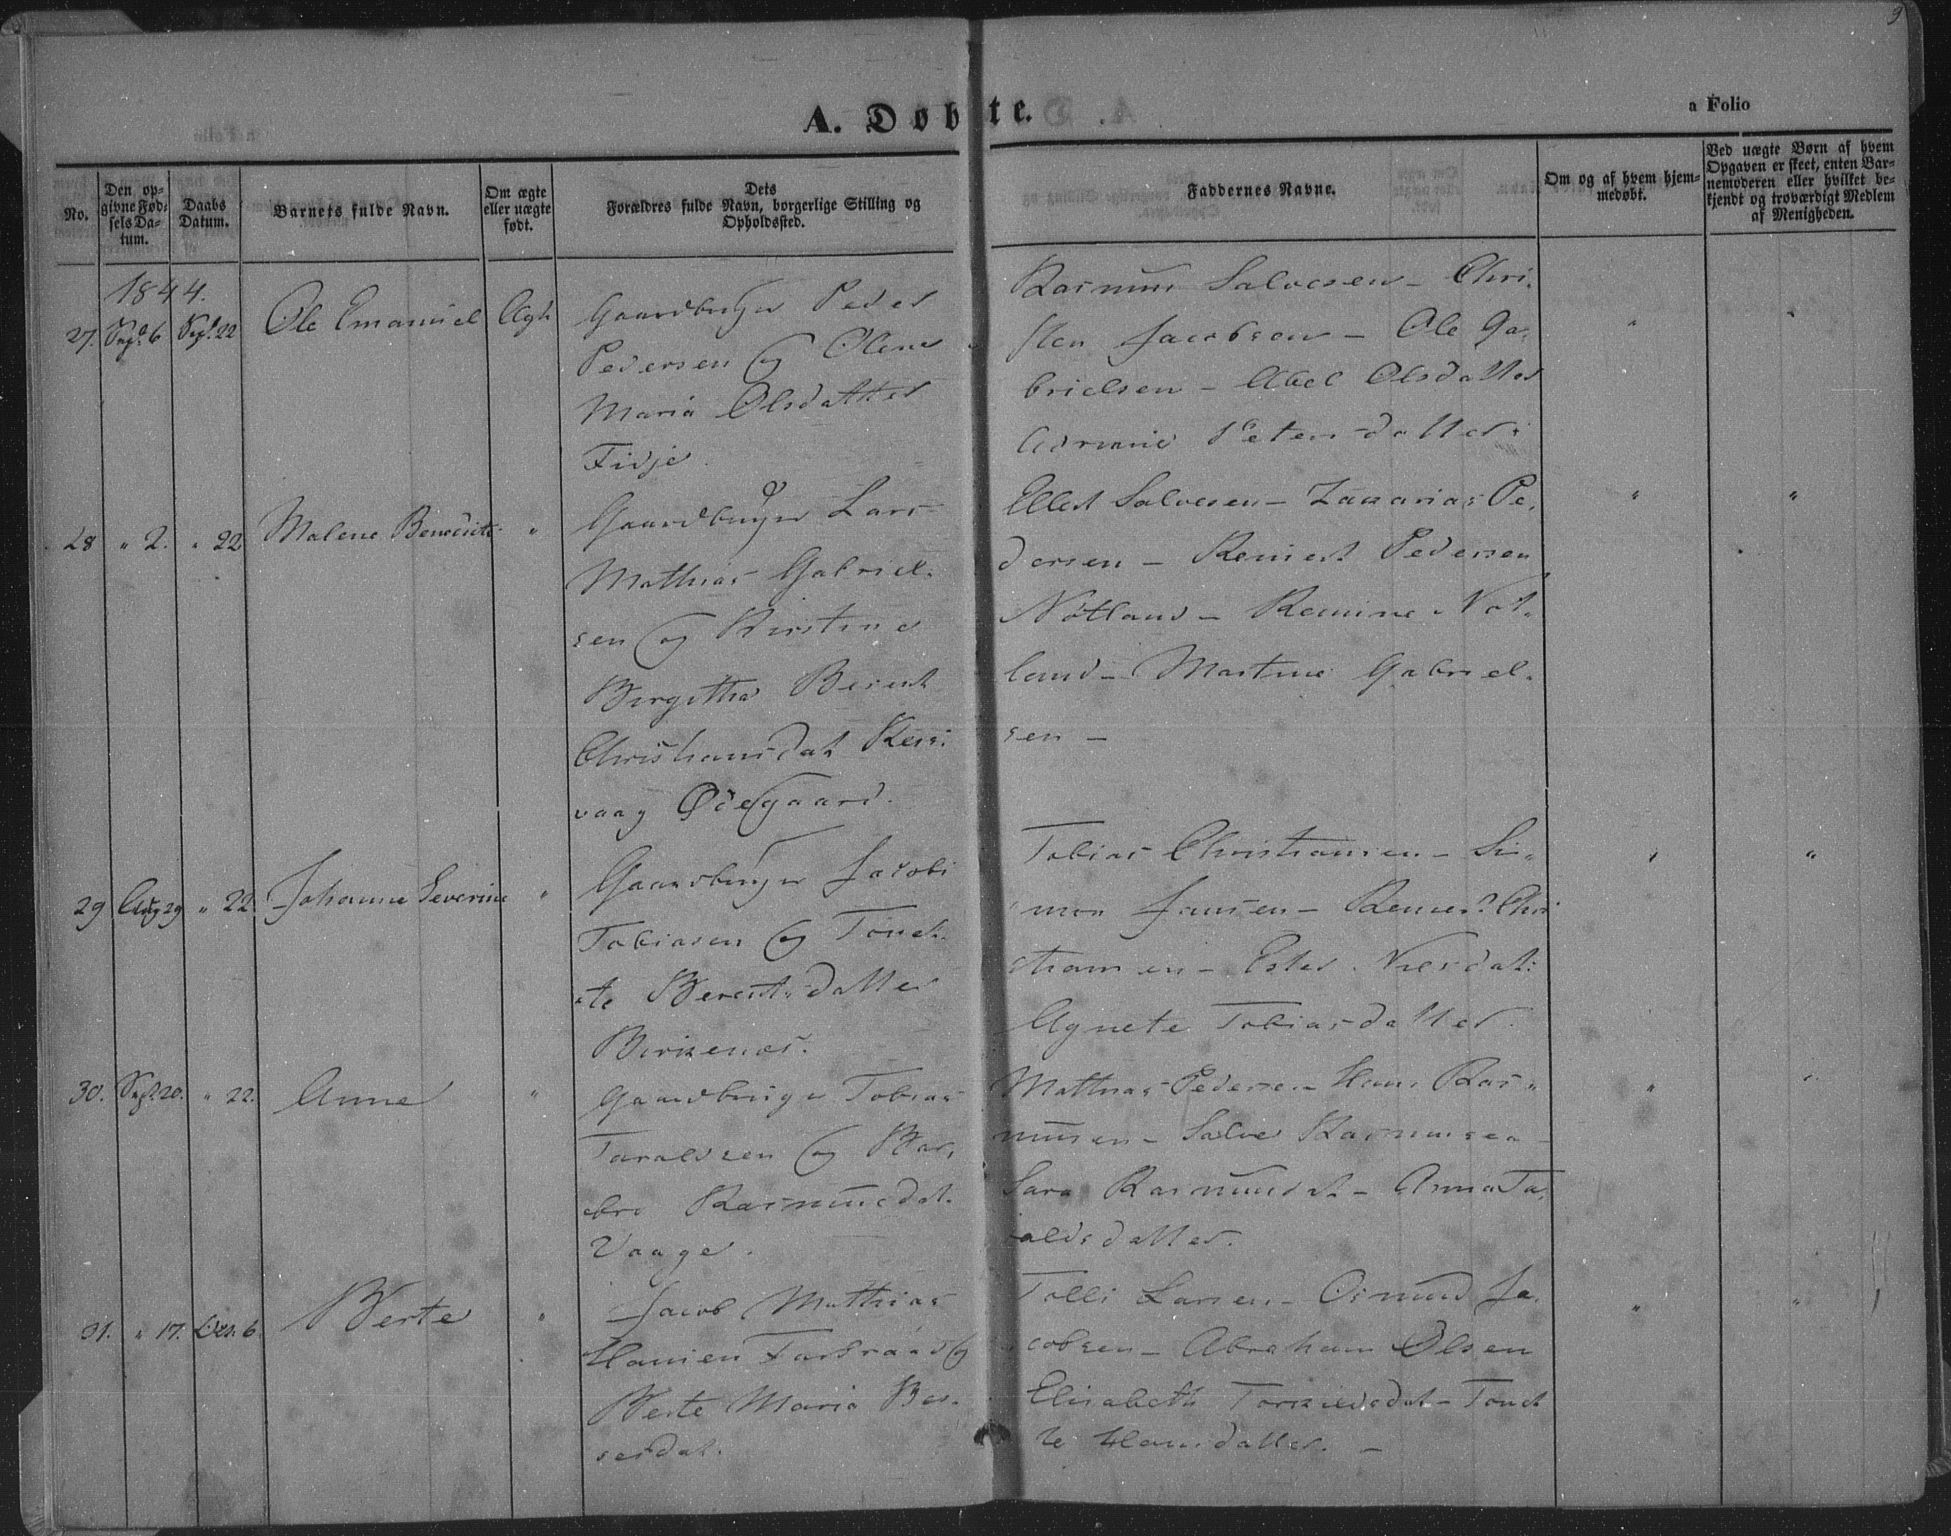 9
A. Døbte.
a Folio
No.
Den op-
givne Fød-
sels Da-
tum.
Daabs
Datum.
Barnets fulde Navn.
Om ægte
eller uægte
født.
Dets
Forældres fulde Navn, borgerlige Stilling og
Opholdssted.
Faddernes Navne.
Om og af hvem hjem-
medøbt.
Ved uægte Børn af hvem
Opgaven er skeet, enten Bar-
nemoderen eller hvilket be-
kjendt og troværdigt Medlem
af Menigheden.
1844.
27. Sept. 6 Sept. 22 Ole Emanuel Ægte
Gaardbruger Peder
Pedersen og Olene
Maria Olsdatter
Fidje.
Rasmus Salvesen - Chri-
sten Jacobsen - Ole Ga-
brielsen - Abel Olsdatter
Petersdatter.
" "
28 " 2. " 22 Malene Benedicte "
Gaardbruger Lars
Mathias Gabriel-
sen og Kirstine
Birgitha Berent
Christiansdat
vaag Ødegaard.
Ellert Salvesen - Zakarias Pe-
dersen - Reinert Pedersen
Nøtland - Remine Nøt-
land - Martine Gabriel-
sen -
" "
29 Aug 29 " 22. Johanne Severine "
Gaardbruger Jacob
Tobiasen og Tonet-
te Berentsdatter
Birkenæs.
Tobias Christiansen - Si-
mon Jansen - Reinert Chri
stiansen - Ester Nilsdat:
Agnete Tobiasdatter.
" "
30. Sept. 20. " 22. Anne "
Gaardbruger Tobias
Taraldsen og Bar-
bro Rasmusdat.
Vaage.
Mathias Pedersen - Hans Ras-
musen - Salve Rasmussen -
Sara Rasmusdat - Anna Ta-
raldsdatter.
" "
31. " 17. Oct. 6 Berte "
Jacob Mathias
Hansen og
Berte Maria
Tolli Larsen - Osmund Ja-
cobsen - Abraham Olsen
Elisabeth Torkildsdat - Tonet
te Hansdatter. -
" "